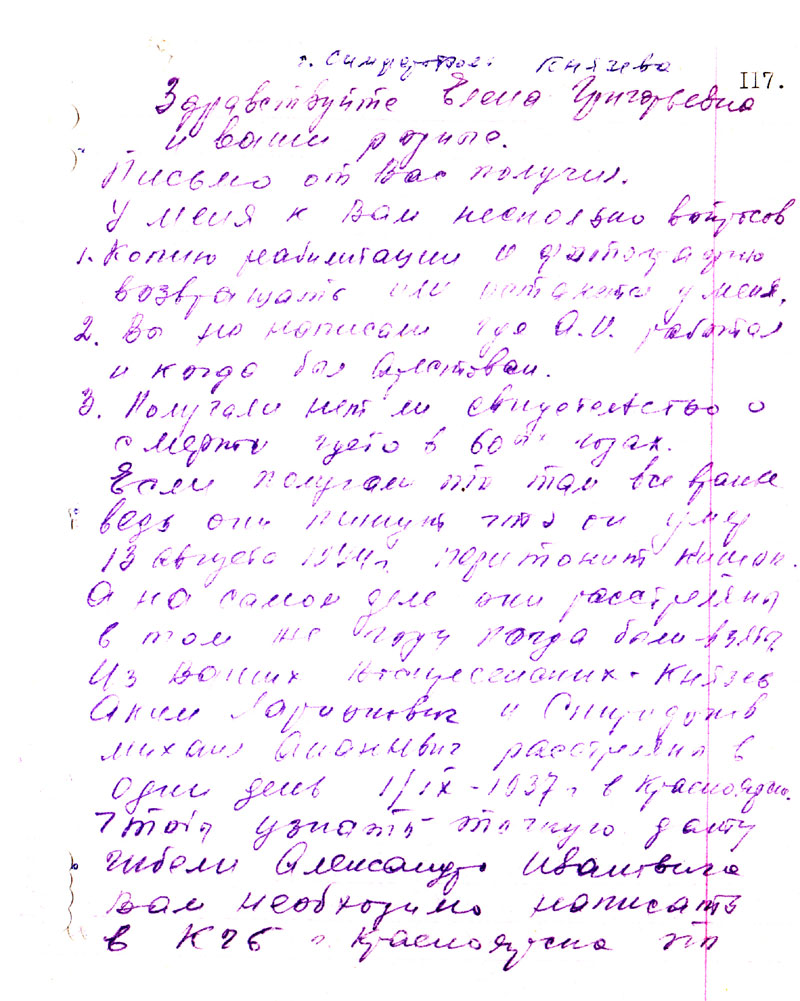 г. Симферополь Князева
117.
Здравствуйте Елена Григорьевна
и ваши родные.
Письмо от Вас получил.
У меня к Вам несколько вопросов
1. Копию реабилитации и фотографию
возвращать или останется у меня.
2. Вы не написали где А.И. работал
и когда был арестован.
3. Получали нет ли свидетельство о
смерти где-то в 60ых годах.
Если получали то там все вранье
ведь они пишут что он умер
13 августа 1944г. перитонит кишок.
А на самом деле они расстреляны
в том же году когда были взяты.
Из Ваших Князев
Аким и Спиридонов
Михаил расстреляны в
один день 1/IX-1937г в Красноярске.
Чтобы узнать точную дату
гибели Александра Ивановича
Вам необходимо написать
в КГБ г. Красноярска